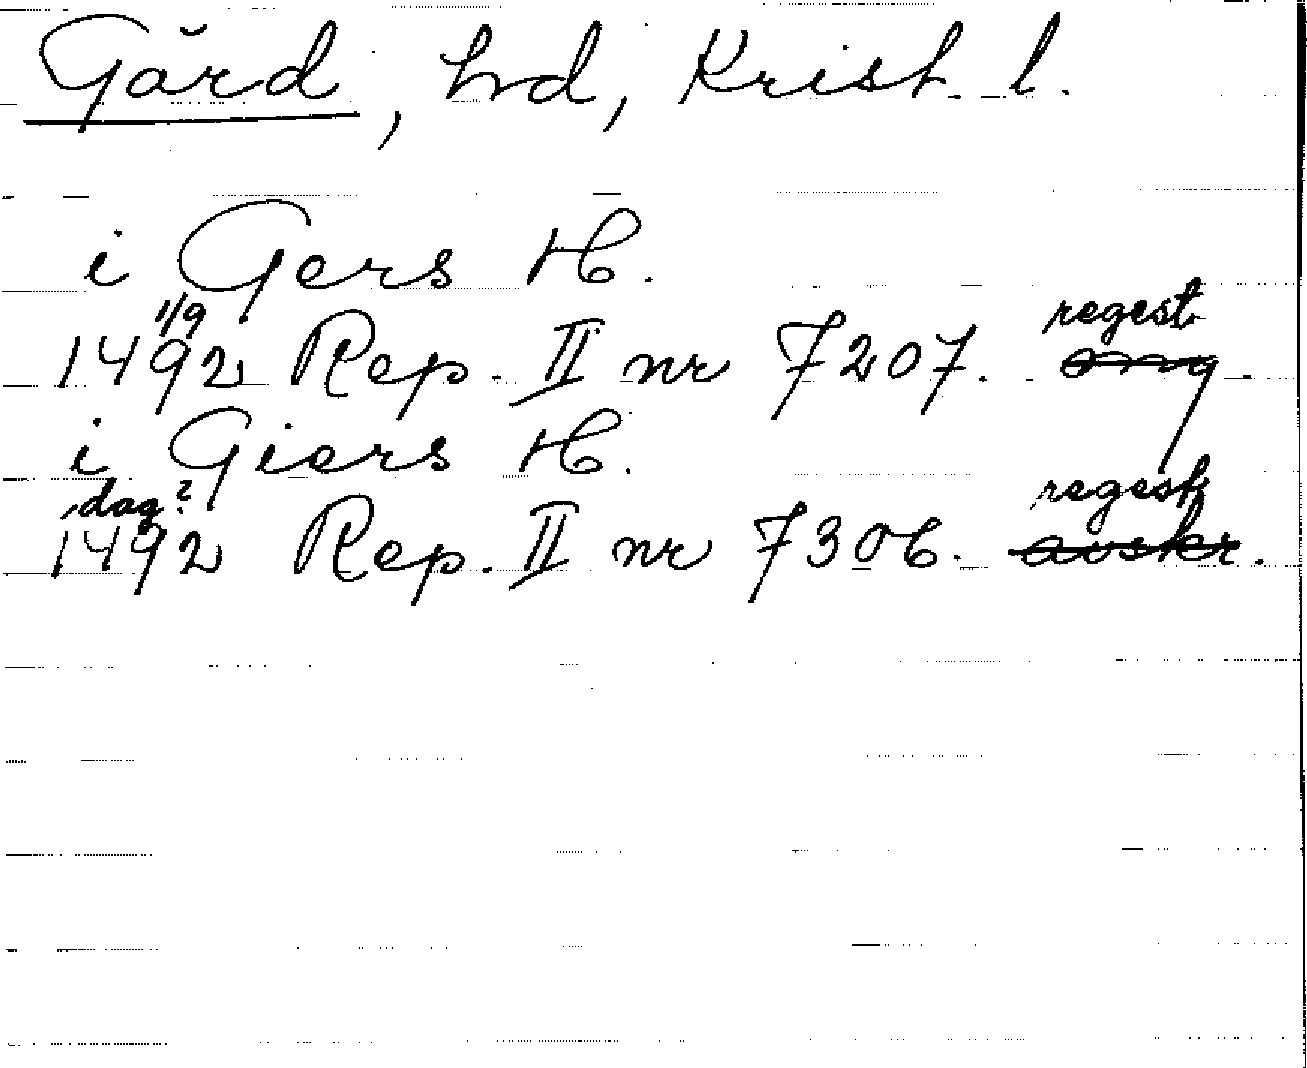 Gärd, hd, Krist. l.
i Gers H.
1/9 regest
1492 Rep. II nr 7207. omg
i Giers H.
dag? regest
1492 Rep. II nr 7306. avskr.